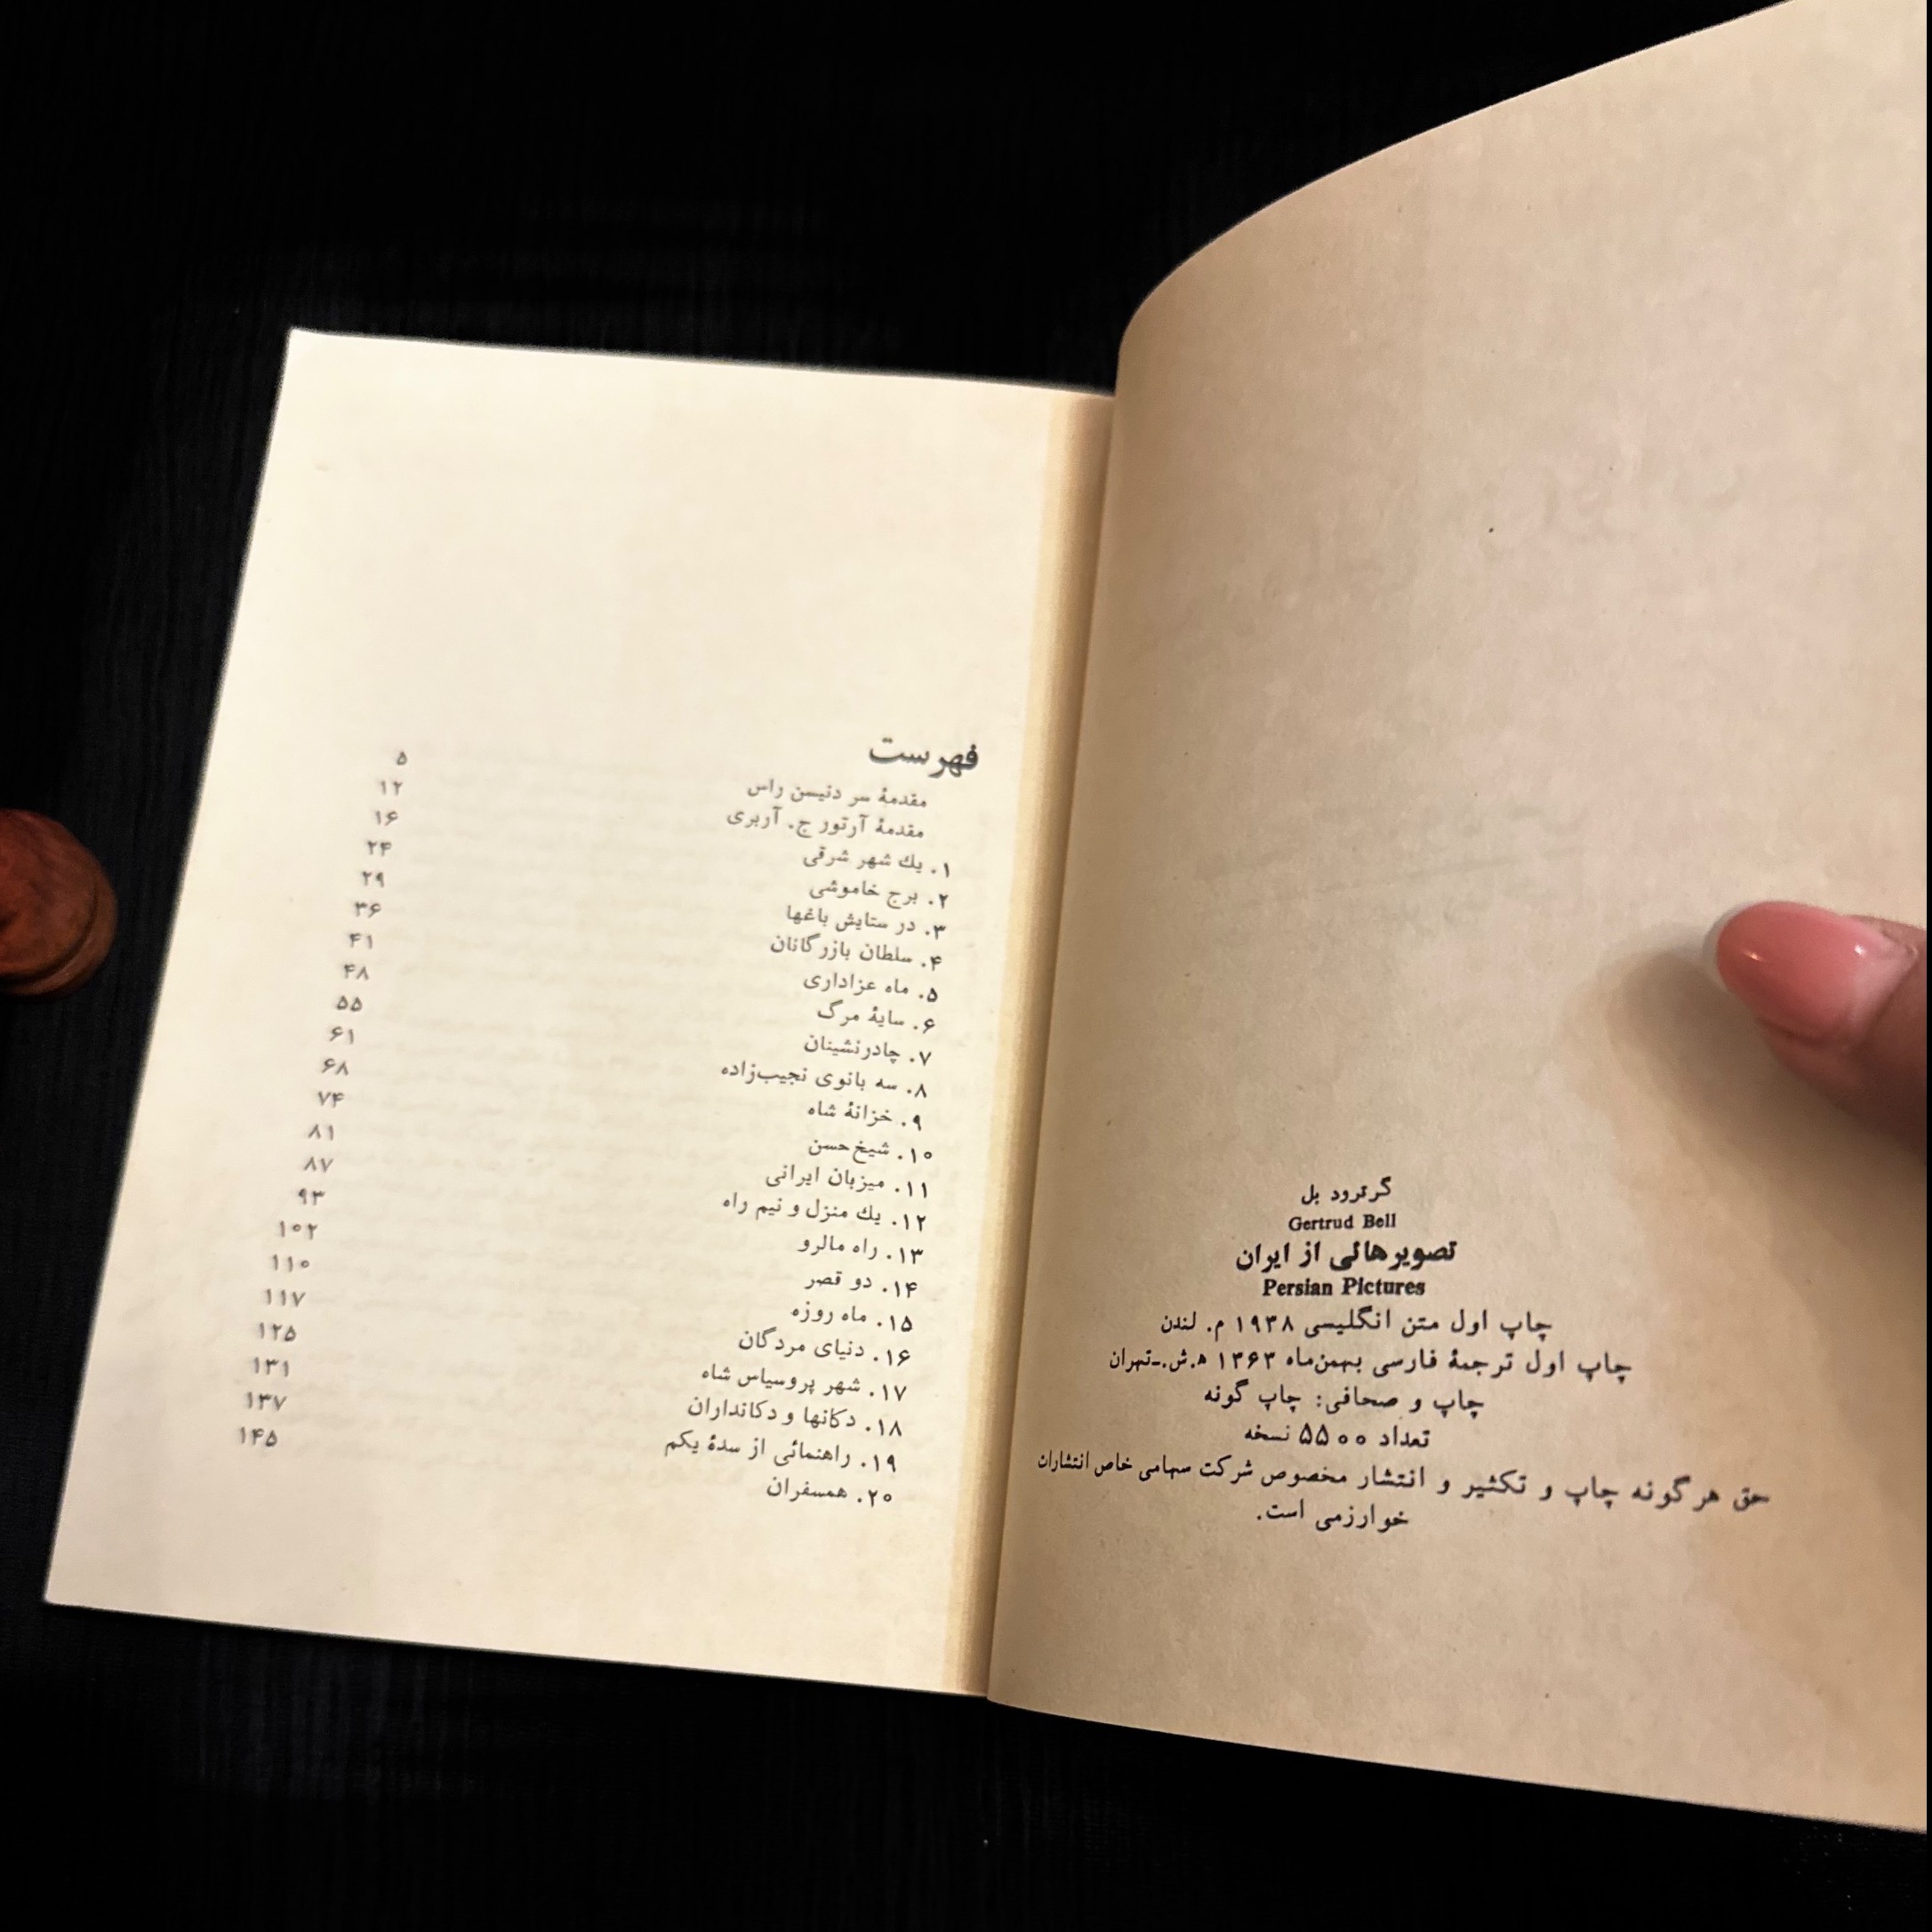 گرترود بل
Gertrud Bell
تصویرهائی از ایران
Persian Pictures
چاپ اول متن انگلیسی ۱۹۳۸ م. لندن
چاپ اول ترجمهٔ فارسی بهمن‌ماه ۱۳۶۳ ه.ش.ـتهران
چاپ و صحافی: چاپ گونه
تعداد ۵۵۰۰ نسخه
حق هرگونه چاپ و تکثیر و انتشار مخصوص شرکت سهامی خاص انتشارات
خوارزمی است.
فهرست
مقدمهٔ سر دنیسن راس ۵
مقدمهٔ آرتور ج. آربری ۱۲
۱. یك شهر شرقی ۱۶
۲. برج خاموشی ۲۴
۳. در ستایش باغها ۲۹
۴. سلطان بازرگانان ۳۶
۵. ماه عزاداری ۴۱
۶. سایهٔ مرگ ۴۸
۷. چادرنشینان ۵۵
۸. سه بانوی نجیب‌زاده ۶۱
۹. خزانهٔ شاه ۶۸
۱۰. شیخ‌حسن ۷۴
۱۱. میزبان ایرانی ۸۱
۱۲. یك منزل و نیم راه ۸۷
۱۳. راه مالرو ۹۳
۱۴. دو قصر ۱۰۲
۱۵. ماه روزه ۱۱۰
۱۶. دنیای مردگان ۱۱۷
۱۷. شهر پروسیاس شاه ۱۲۵
۱۸. دکانها و دکانداران ۱۳۱
۱۹. راهنمائی از سدهٔ یکم ۱۳۷
۲۰. همسفران ۱۴۵